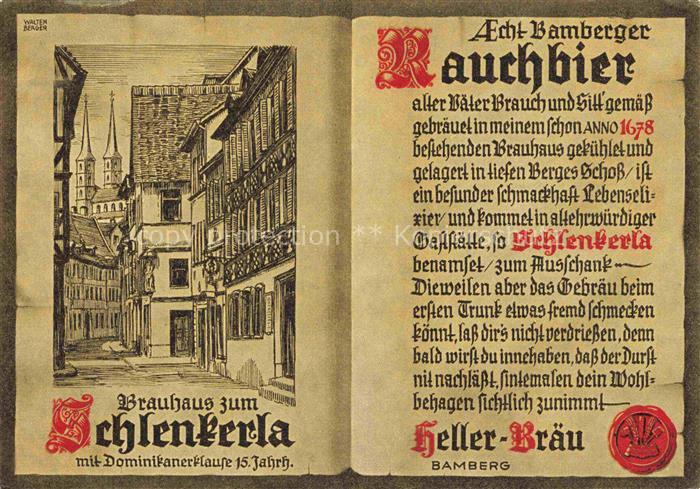 WALTEN
BERGER
Brauhaus zum
Schlenkerla
mit Dominikanerklause 15. Jahrh.
Æcht Bamberger
Rauchbier
alter Väter Brauch und Sitt' gemäß
gebräuet in meinem schon ANNO 1678
bestehenden Brauhaus gekühlet und
gelagert in tiefen Berges Schoß/ ist
ein besunder schmackhaft Lebenseli-
xier/ und kommet in altehrwürdiger
Gaststätte, so Schlenkerla
benamset/ zum Ausschank—
Dieweilen aber das Gebräu beim
ersten Trunk etwas fremd schmecken
könnt, laß dir's nicht verdrießen, denn
bald wirst du innehaben, daß der Durst
nit nachläßt, sintemalen dein Wohl-
behagen sichtlich zunimmt—
Heller-Bräu
BAMBERG
copy protection ** Ko